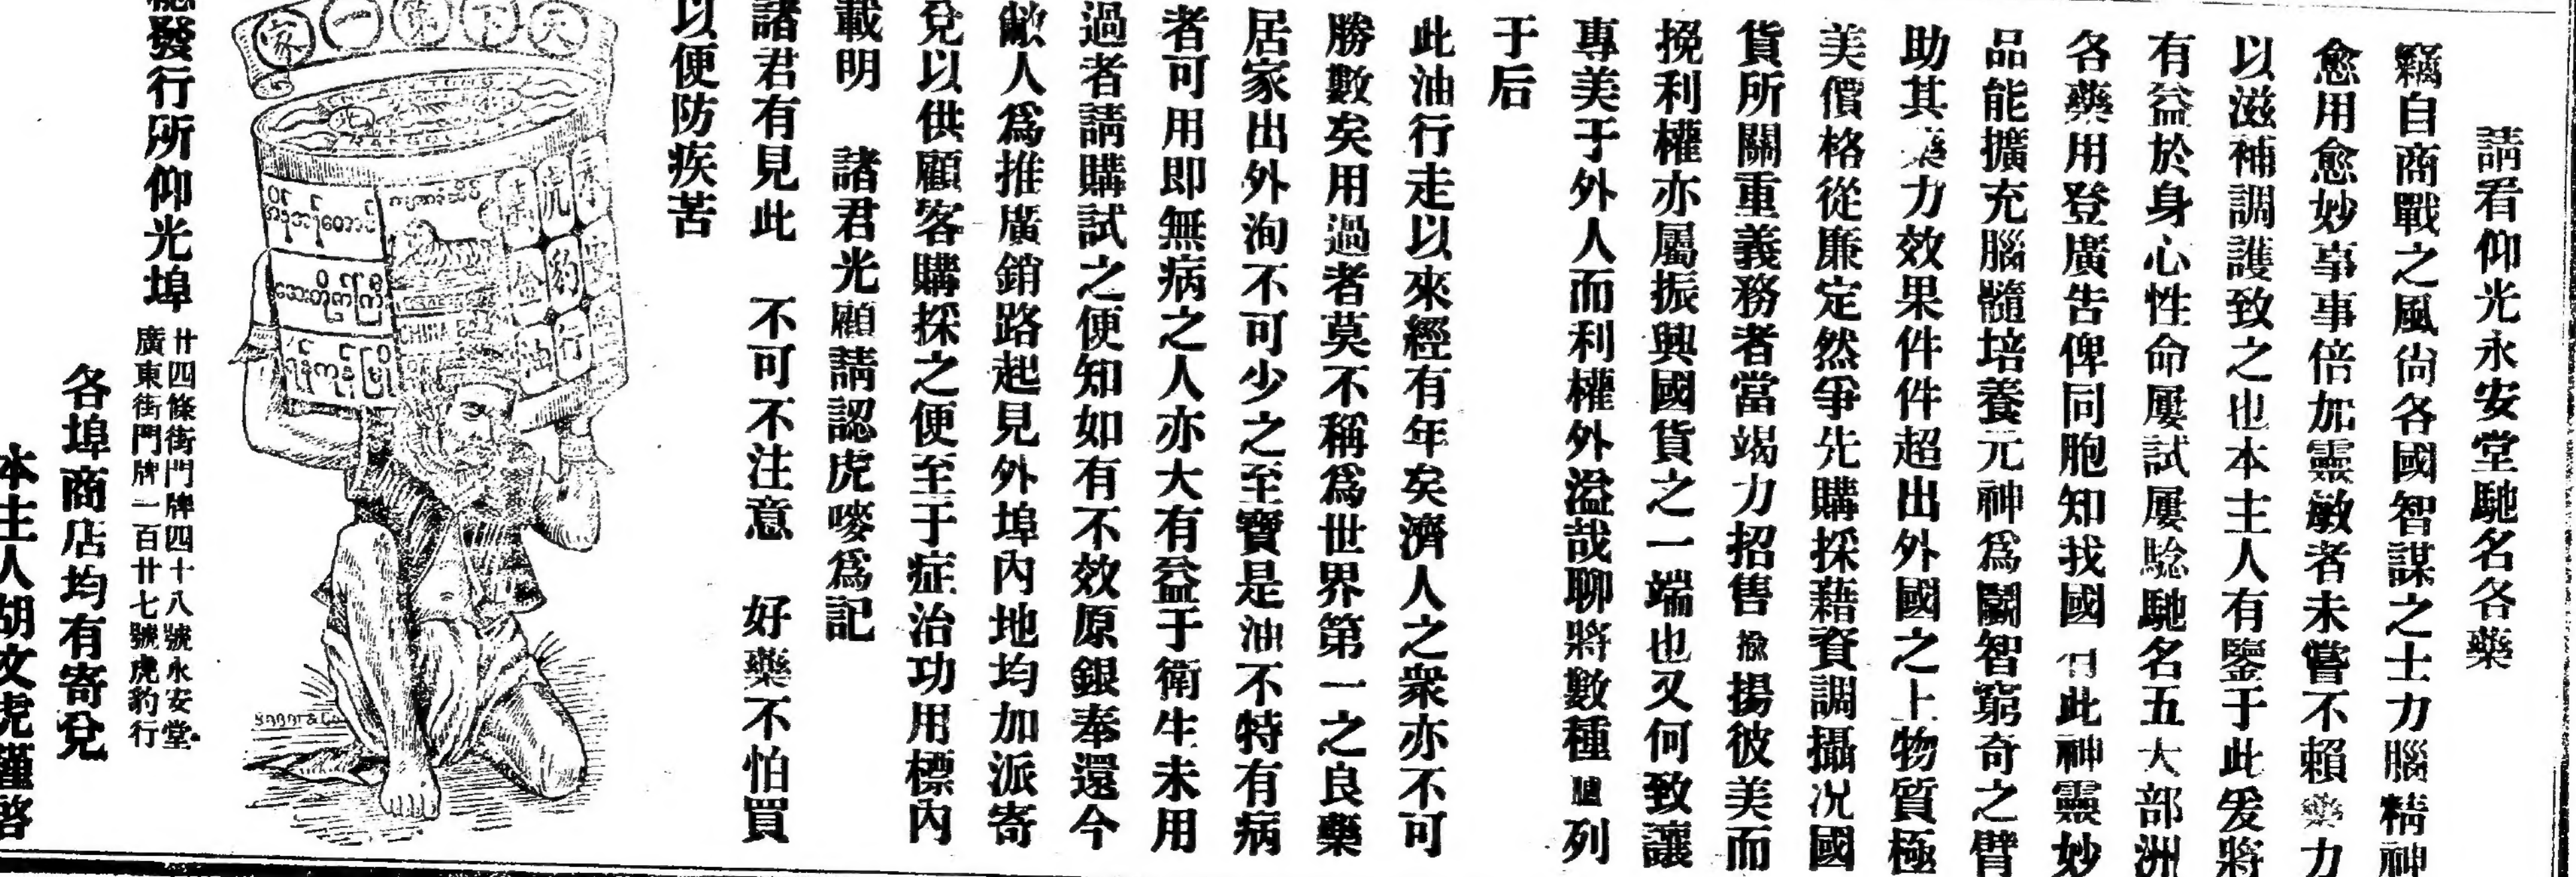 請看仰光永安堂馳名各藥
竊自商戰之風尙各國智謀之士力腦精神
愈用愈妙事事倍加靈敏者未嘗不賴藥力
以滋補調護致之也本主人有鑒于此爰將
有益於身心性命屢試屢驗馳名五大部洲
各藥用登廣告俾同胞知我國有此神靈妙
品能擴充腦髓培養元神爲鬭智窮奇之臂
助其藥力效果件件超出外國之上物質極
美價格從廉定然爭先購採藉資調攝况國
貨所關重義務者當竭力招售揄揚彼美而
挽利權亦屬振興國貨之一端也又何致讓
專美于外人而利權外溢哉聊將數種臚列
于后
此油行走以來經有年矣濟人之衆亦不可
勝數矣用過者莫不稱爲世界第一之良藥
居家出外洵不可少之至寶是油不特有病
者可用即無病之人亦大有益于衛生未用
過者請購試之便知如有不效原銀奉還今
敝人爲推廣銷路起見外埠內地均加派寄
兌以供顧客購採之便至于症治功用標內
載明 諸君光顧請認虎嘜爲記
諸君有見此 不可不注意 好藥不怕買
以便防疾苦
天下第一家
虎
豹
行
油
發行所仰光埠
廿四條街門牌四十八號永安堂
廣東街門牌一百廿七號虎豹行
各埠商店均有寄兌
本主人胡文虎謹啓